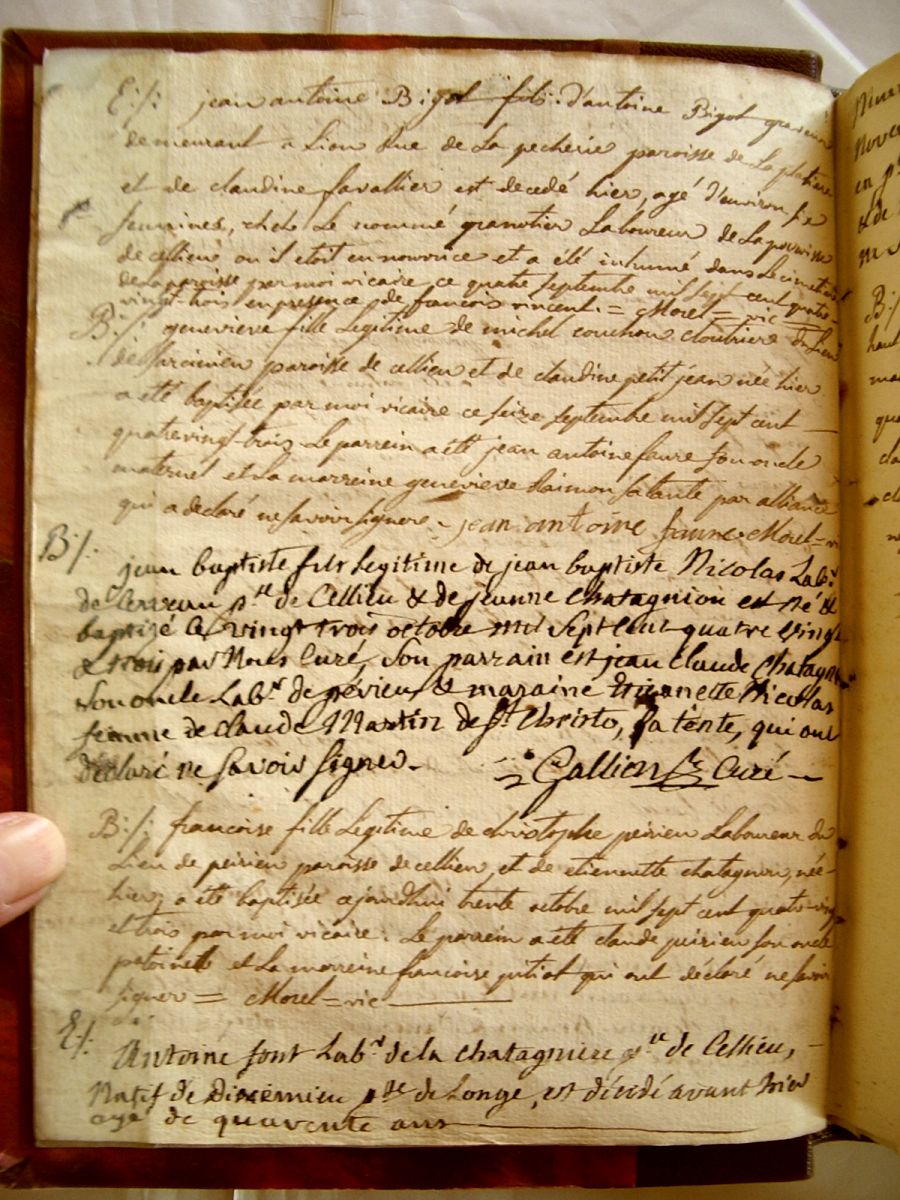 E:/: jean antoine Bigot fils d'antoine Bigot graveur
demeurant a Lion Rue de La pecherie paroisse de La platiere
et de claudine favallier est decedé hier, agé d'environ six
semaines, chés Le nommé granotier Laboureur de La paroisse
de cellieu ou il etoit en nourrice et a été inhumé dans Le cimetiere
de La paroisse par moi vicaire ce quatre septembre mil sept cent quatre
vingt-trois en presence de francois vincent. = Morel = vic =
B:/: genevieve fille Legitime de michel couchou cloutier du Lieu
de paroisse de cellieu et de claudine petit jean née hier
a été baptisée par moi vicaire ce seize septembre mil sept cent
quatrevingt-trois Le parrein a été jean antoine faure son oncle
maternel et La marreine genevieve sa tante par alliance
qui a declaré ne savoir signer. jean antoine faure Morel = vi
B:/. jean baptiste fils Legitime de jean baptiste Nicolas Labr
de p.sse de Cellieu & de jeanne Chatagnion est Né &
baptizé Ce vingt trois octobre mil Sept Cent quatre Vingt
& trois par Nous Curé, Son parrain est jean Claude Chatagn
Son oncle Labr de & maraine Nicolas
femme de Claude Martin de St Christo, Sa tente, qui ont
déclaré ne Savoir Signer. Gallien Curé
B:/: francoise fille Legitime de christophe peirieu Laboureur du
Lieu de peirieu paroisse de cellieu, et de etiennette chatagnon, née
hier, a été baptisée ajourdhui trente octobre mil sept cent quatre-ving
et trois par moi vicaire. Le parrein a été claude peirieu son oncle
et La marreine francoise qui ont déclaré ne savoir
signer = Morel = vic
E/: Antoine font Labr de la Chatagniere p.sse de Cellieu,
Natif de p.sse de Longe, est décédé avant hier
agé de quarente ans